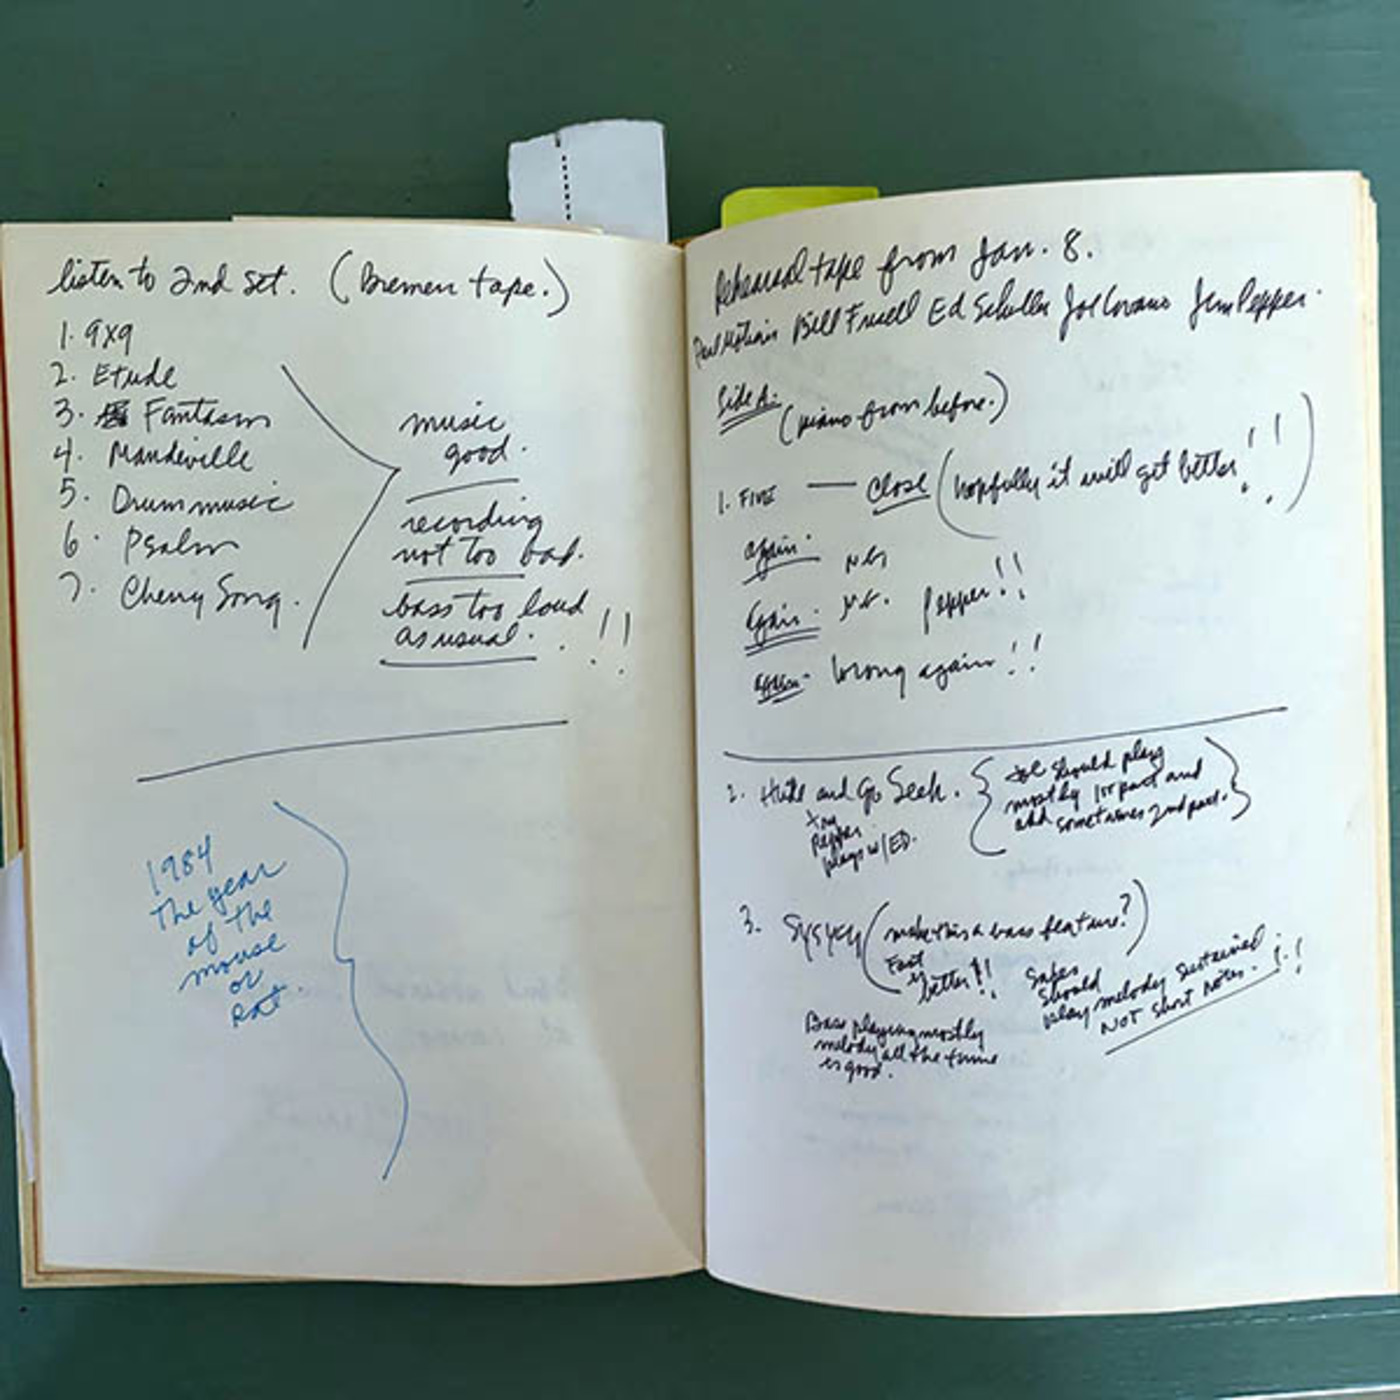 listen to 2nd set. (Bremen tape.)
1. 9x9
2. Etude
3. Fantasm
4. Mandeville
5. Drum music
6. Psalm
7. Cherry Song.
music
good.
recording
not too bad.
bass too loud
as usual. !!
1984
the year
of the
mouse
or
Rat.
Rehearsal tape from Jan. 8.
Paul Motian Bill Frisell Ed Schuller Joe Lovano Jim Pepper.
Side A: (piano from before.)
1. FIVE — Close (hopefully it will get better!!)
again.
again. Pepper!!
again. Wrong again!!
2. Hide and Go Seek. { Joe should play
mostly 1st part and
add sometimes 2nd part. }
Try
Pepper
plays w/ED.
3. Sysyky (make this a bass feature?)
Fast
is
better!!
Saxes
should
play melody sustained
NOT short notes. !!
Bass playing mostly
melody all the time
is good.